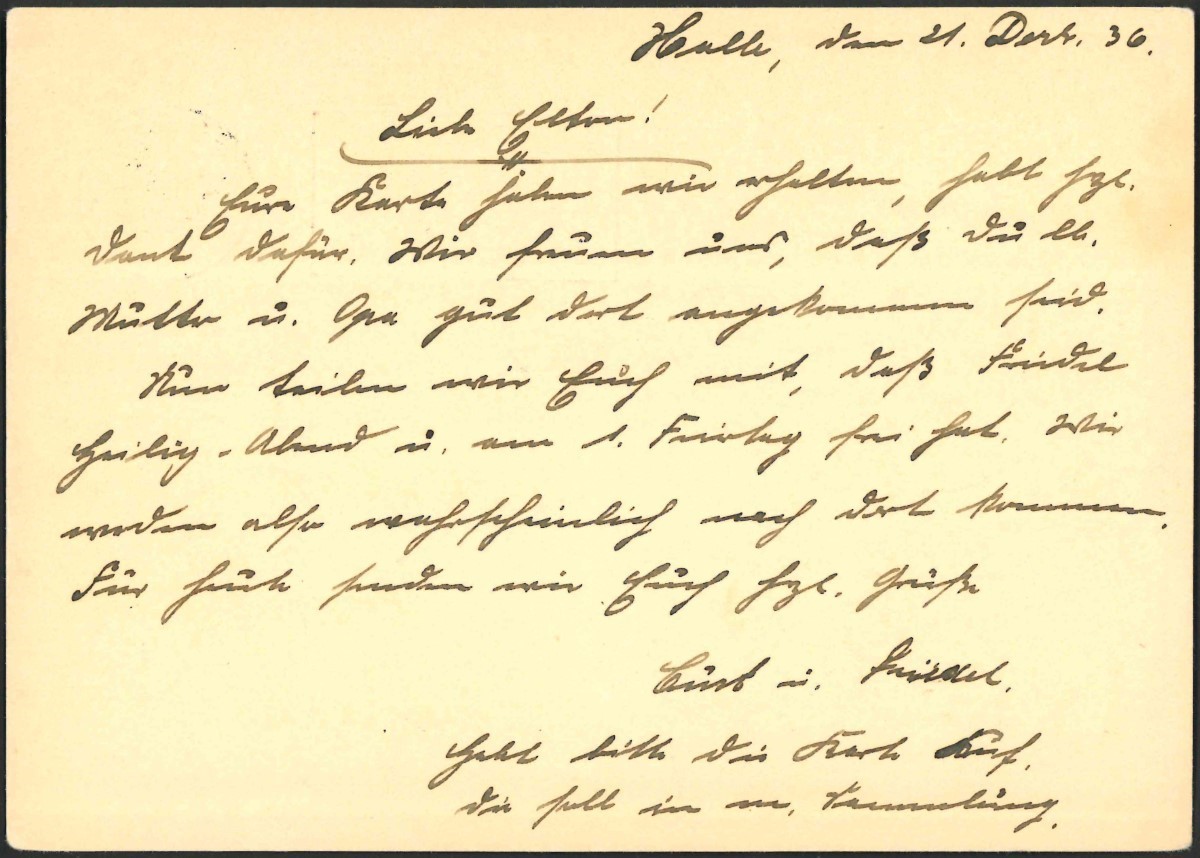 Halle, den 21. Dezb. 36.
Liebe Eltern!
Eure Karte haben wir erhalten, habt hzl.
Dank dafür. Wir freuen uns, daß Du lb.
Mutter u. Opa gut dort angekommen seid.
Nun teilen wir Euch mit, daß Friedel
Heilig-Abend u. am 1. Feiertag frei hat. Wir
werden also wahrscheinlich nach dort kommen.
Für heute senden wir Euch hzl. Grüße
Curt u. Friedel.
Hebt bitte die Karte auf,
die soll in m. Sammlung.